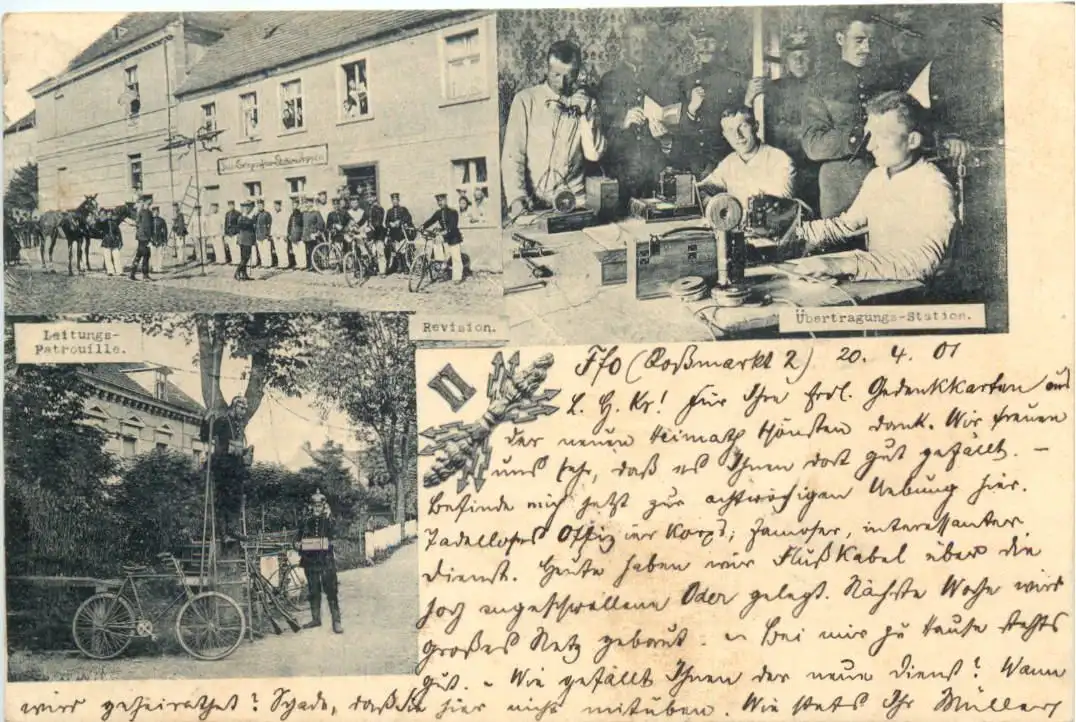 Leitungs-
Patrouille.
Revision.
Übertragungs-Station.
II
Ffo (Roßmarkt 2) 20. 4. 01
L. H. Kr! Für Ihre frdl. Gedenkkarten aus
der neuen Heimath schönsten Dank. Wir freuen
uns sehr, daß es Ihnen dort gut gefällt. –
Befinde mich jetzt zur achtwöchigen Uebung hier.
Tadelloses Offizier Korps; famoser, interessanter
Dienst. Heute haben wir Flußkabel über die
hoch angeschwollene Oder gelegt. Nächste Woche wird
großes Netz gebaut. – Bei mir zu Hause stehts
gut. – Wie gefällt Ihnen der neue Dienst? Wann
wird geheirathet? Schade, daß Sie hier nicht mitüben. Wie stets Ihr Müller